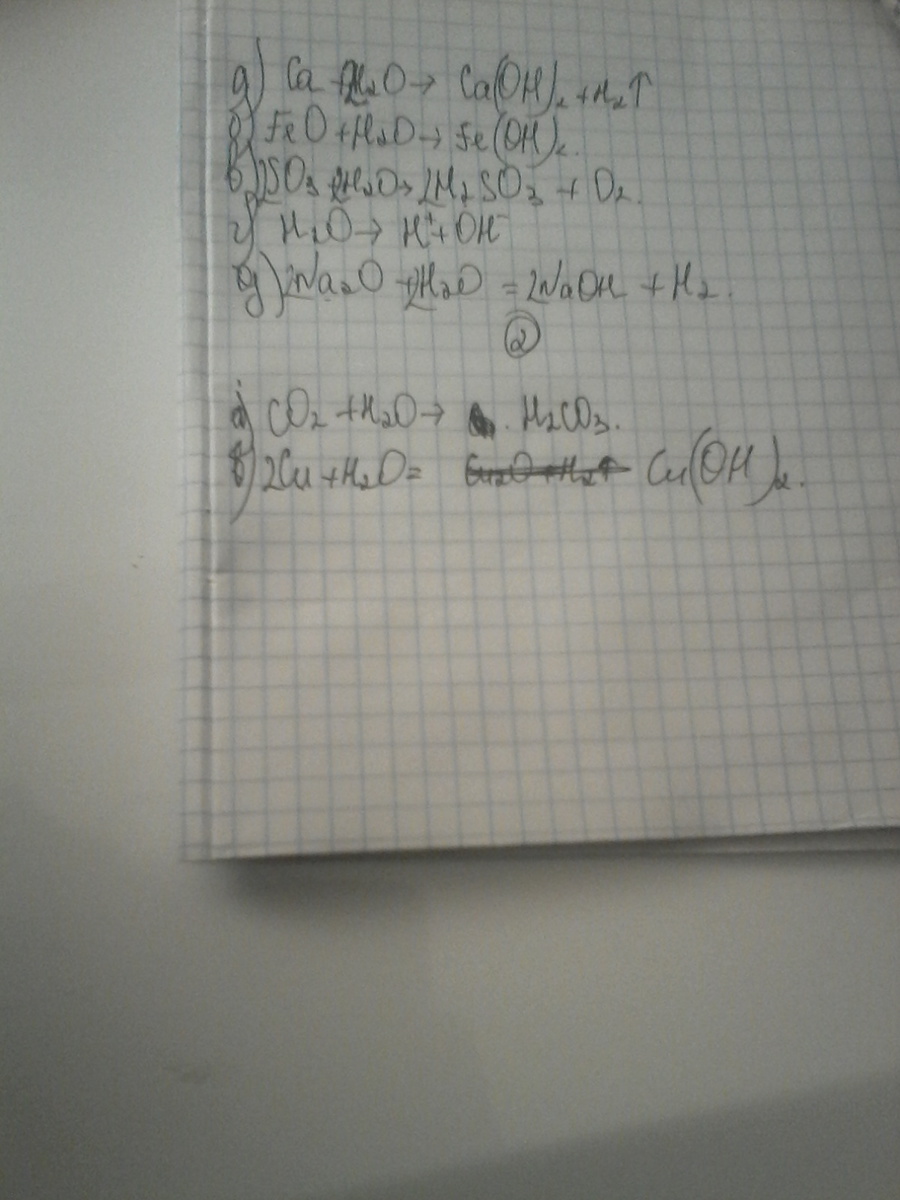 а) Ca + 2H₂O → Ca(OH)₂ + H₂↑
б) FeO + H₂O → Fe(OH)₂.
в) 2SO₃ + 2H₂O → 2H₂SO₃ + O₂.
г) H₂O → H⁺ + OH⁻
д) 2Na₂O + 2H₂O = 2NaOH + H₂.
②
а) CO₂ + H₂O → H₂CO₃.
б) 2Cu + H₂O = Cu₂O + H₂↑ Cu(OH)₂.